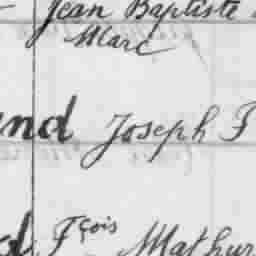 Jean Baptiste
Marc
nd Joseph F
d Fçois Mathur